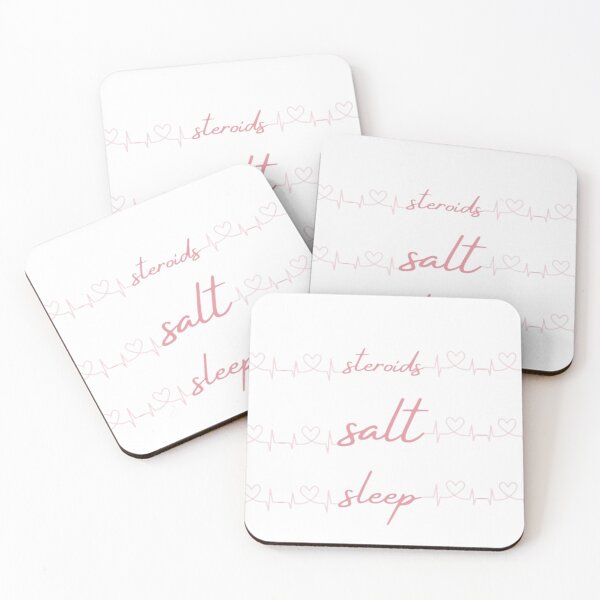 steroids
steroids
salt
steroids
salt
sleep
steroids
salt
sleep